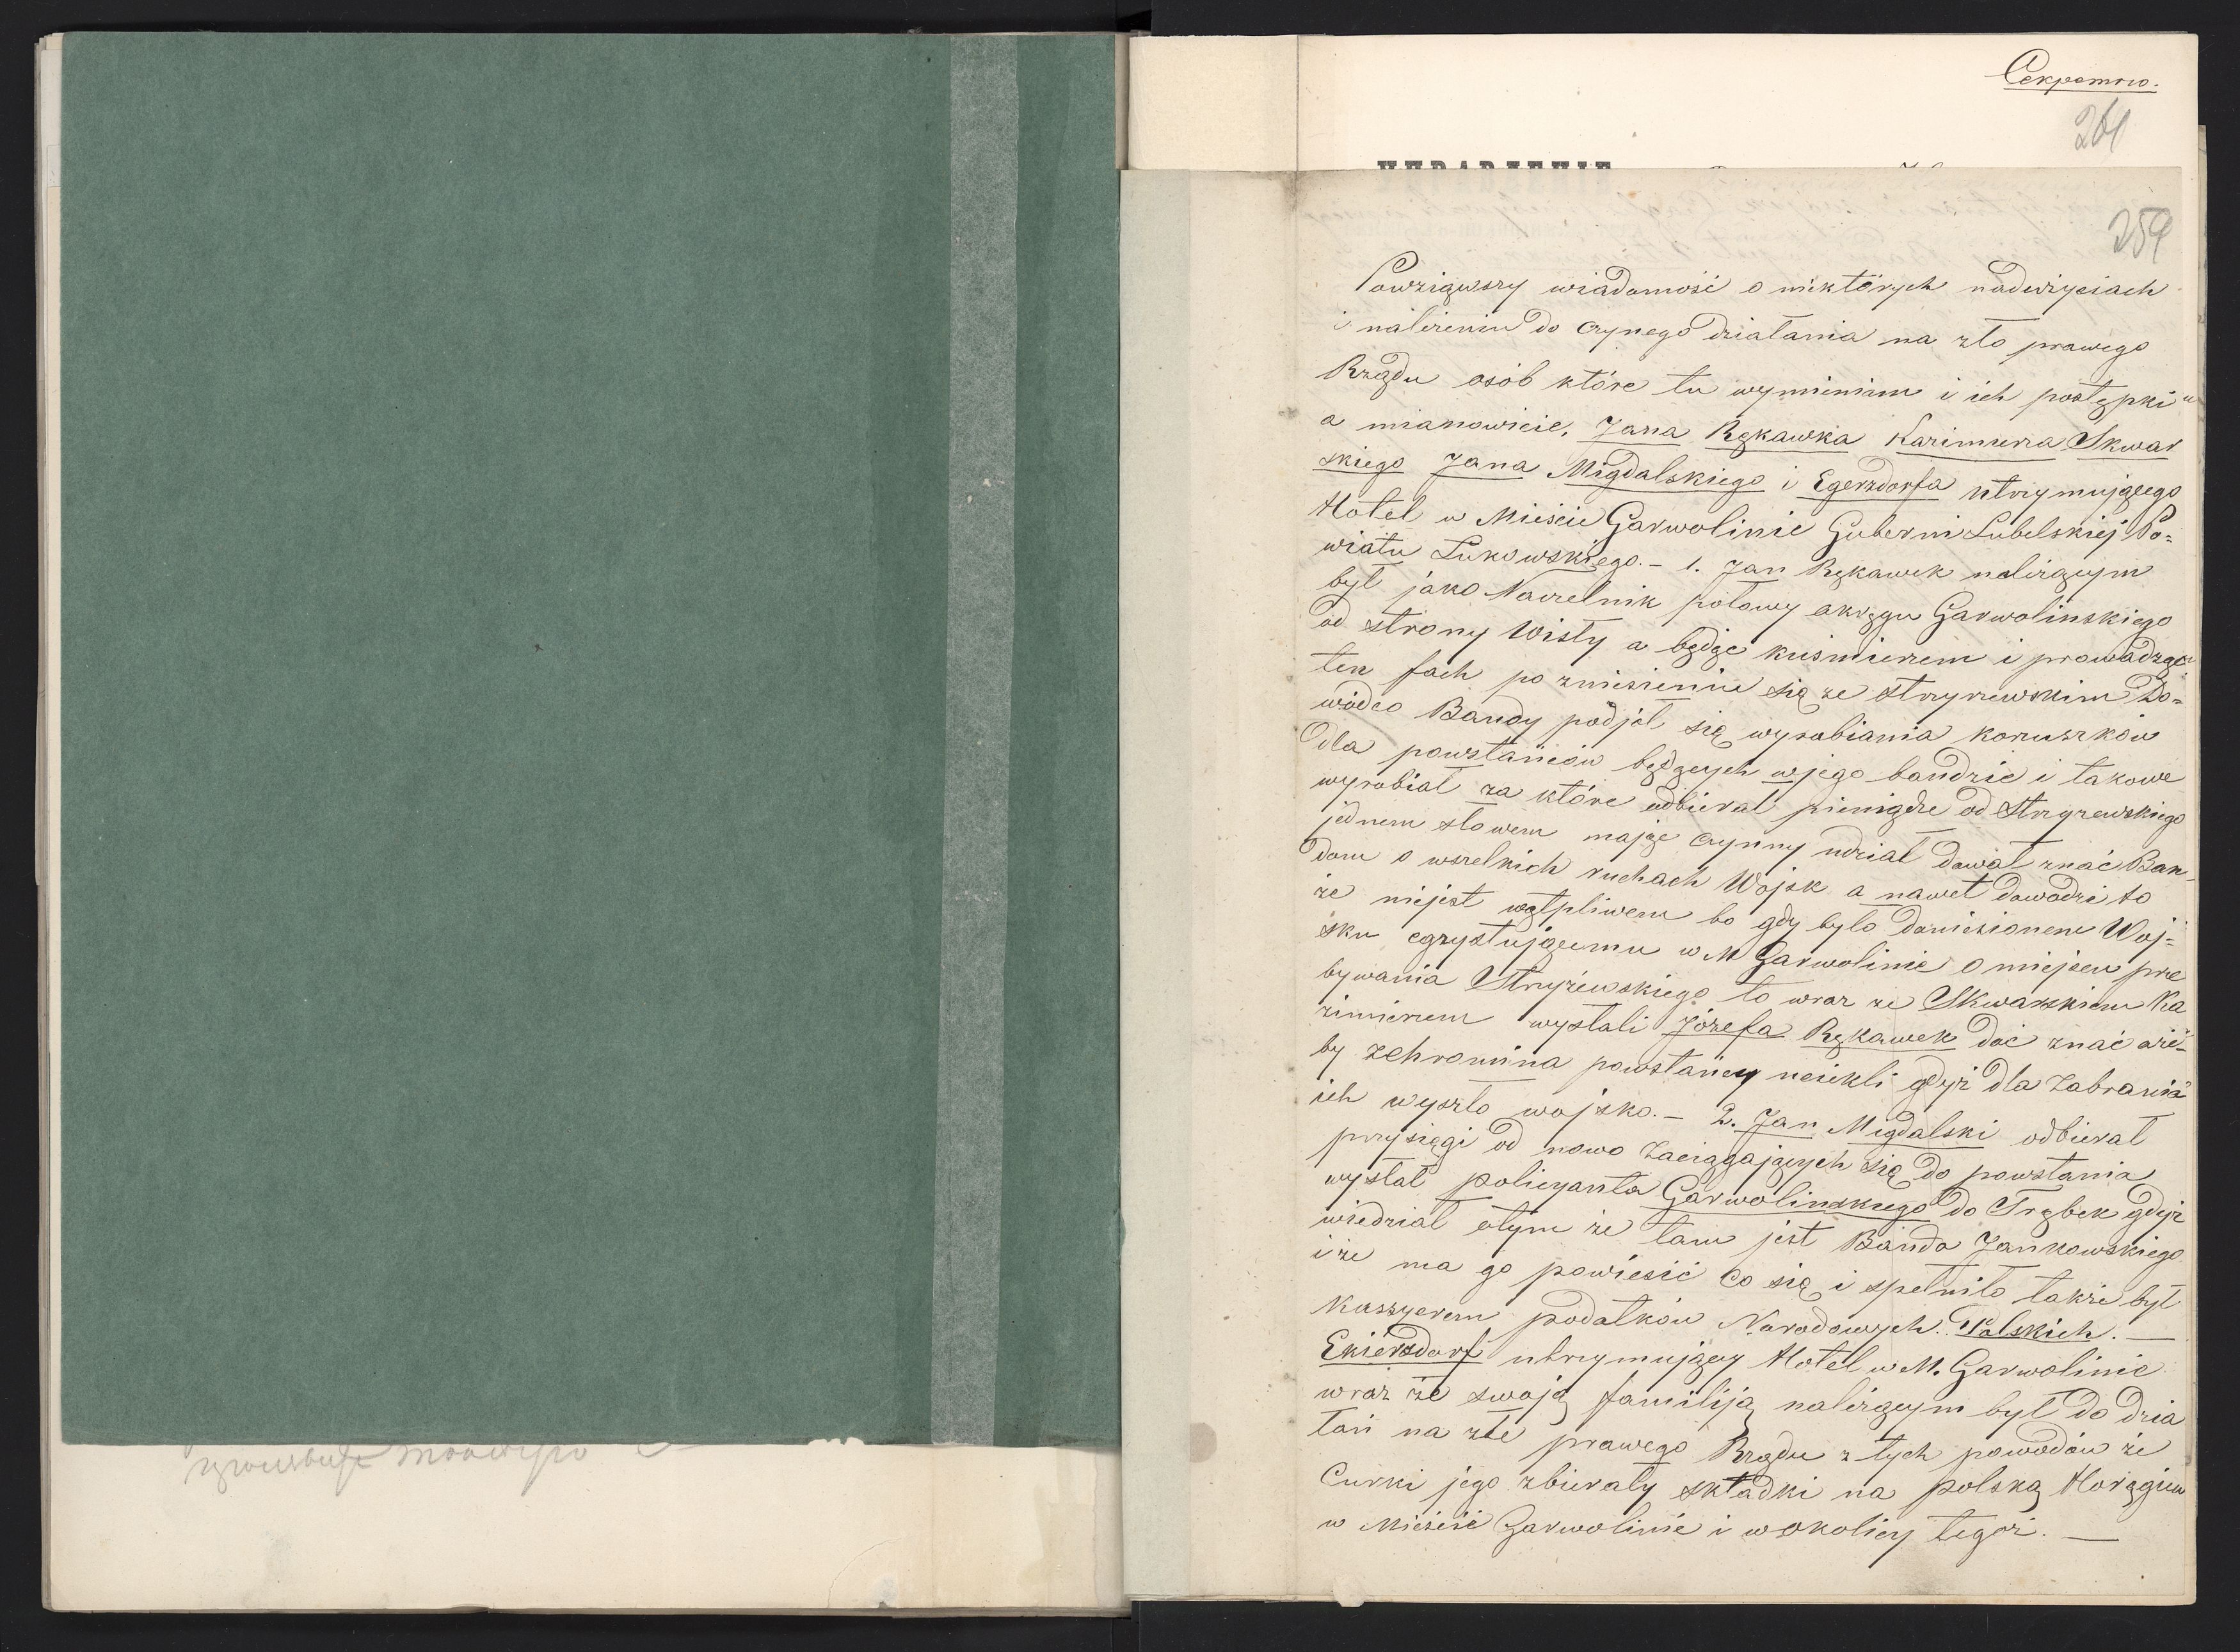 Секретно.
261
УПРАВЛЕНІЕ
259
Powziąwszy wiadomość o niektórych nadużyciach
i należeniu do czynego działania na zło prawego
Rządu osób które tu wymieniam i ich postępki
a mianowicie, Jana Rękawka Kazimierza Skwar
skiego Jana Migdalskiego i Egerzdorfa utrzymującego
Hotel w Mieście Garwolinie Guberni Lubelskiej Po=
wiatu Łukowskiego. – 1. Jan Rękawek należącym
był jako Naczelnik połowy okręgu Garwolinskiego
od strony Wisły a będąc kuśmierzem i prowadząc
ten fach po zniesieniu się ze Stryrzewskim Do=
wódco Bandy podjął się wyrabiania korzuszków
dla powstańców będących wjego bandzie i takowe
wyrabiał za które odbierał pieniądze od Stryrzewskiego
jednem słowem mając czynny udział dawał znać Ban-
dom o wszelkich ruchach Wojsk a nawet dowodzi to
że niejest wątpliwem bo gdy było doniesionem Woj=
sku egzystującemu w M Garwolinie o miejscu prze
bywania Stryżewskiego to wraz ze Skwarskiem Ka
zimierzem wysłali Józefa Rękawek dać znać ażé-
by zchromina powstańcy uciekli gdyż dla Zabrania
ich wyszło wojsko. – 2. Jan Migdalski odbierał
przysięgi od nowo Zaciągających się do powstania
wysłał policyanta Garwolinskiego do Trąbek gdyż
wiedział otym że tam jest Banda Jankowskiego
iże ma go powiesić Co się i spełniło także był
Kassyerem podatków Narodowych Polskich. —
Ekierzdorf utrzymujący Hotel w M. Garwolinie
wraz ze swoją familiją należącym był do dzia
łań na złe prawego Rządu z tych powodów że
Curki jego zbierały składki na polską Horągiew
w Mieście Garwolinie i w okolicy tegoż. —